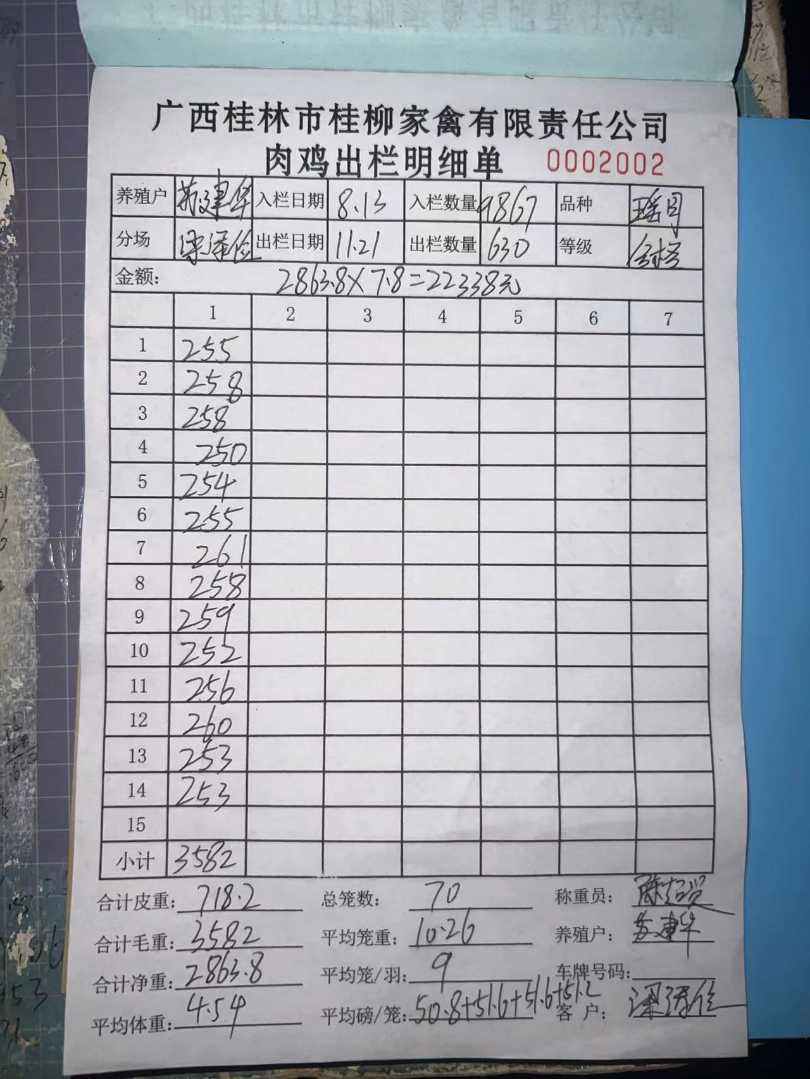 广西桂林市桂柳家禽有限责任公司
肉鸡出栏明细单 0002002
养殖户 苏建华 入栏日期 8.13 入栏数量 9867 品种
分场 出栏日期 11.21 出栏数量 630 等级 合格
金额: 2863.8×7.8=22338元
1 2 3 4 5 6 7
1 255
2 258
3 258
4 250
5 254
6 255
7 261
8 258
9 259
10 252
11 256
12 260
13 253
14 253
15
小计 3582
合计皮重: 718.2 总笼数: 70 称重员:
合计毛重: 3582 平均笼重: 10.26 养殖户: 苏建华
合计净重: 2863.8 平均笼/羽: 9 车牌号码:
平均体重: 4.54 平均磅/笼: 50.8+51.6+51.6+51.2 客 户: